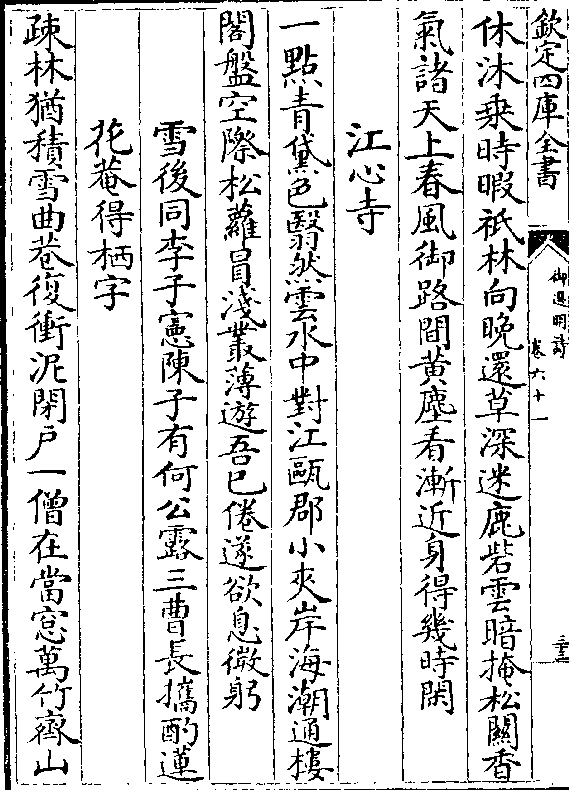 欽定四庫全書
御選明詩
卷六十一
三三
休沐乗時暇祇林向晚還草深迷鹿砦雲暗掩松關香
氣諸天上春風御路間黄塵看漸近身得幾時閑
江心寺
一點青黛色翳然雲水中對江甌郡小夾岸海潮通樓
閣盤空際松蘿冒淺叢薄遊吾已倦遂欲息微躬
雪後同李子憲陳子有何公露三曹長攜酌蓮
花菴得栖字
疎林猶積雪曲巷復衝泥閉户一僧在當窓萬竹齊山